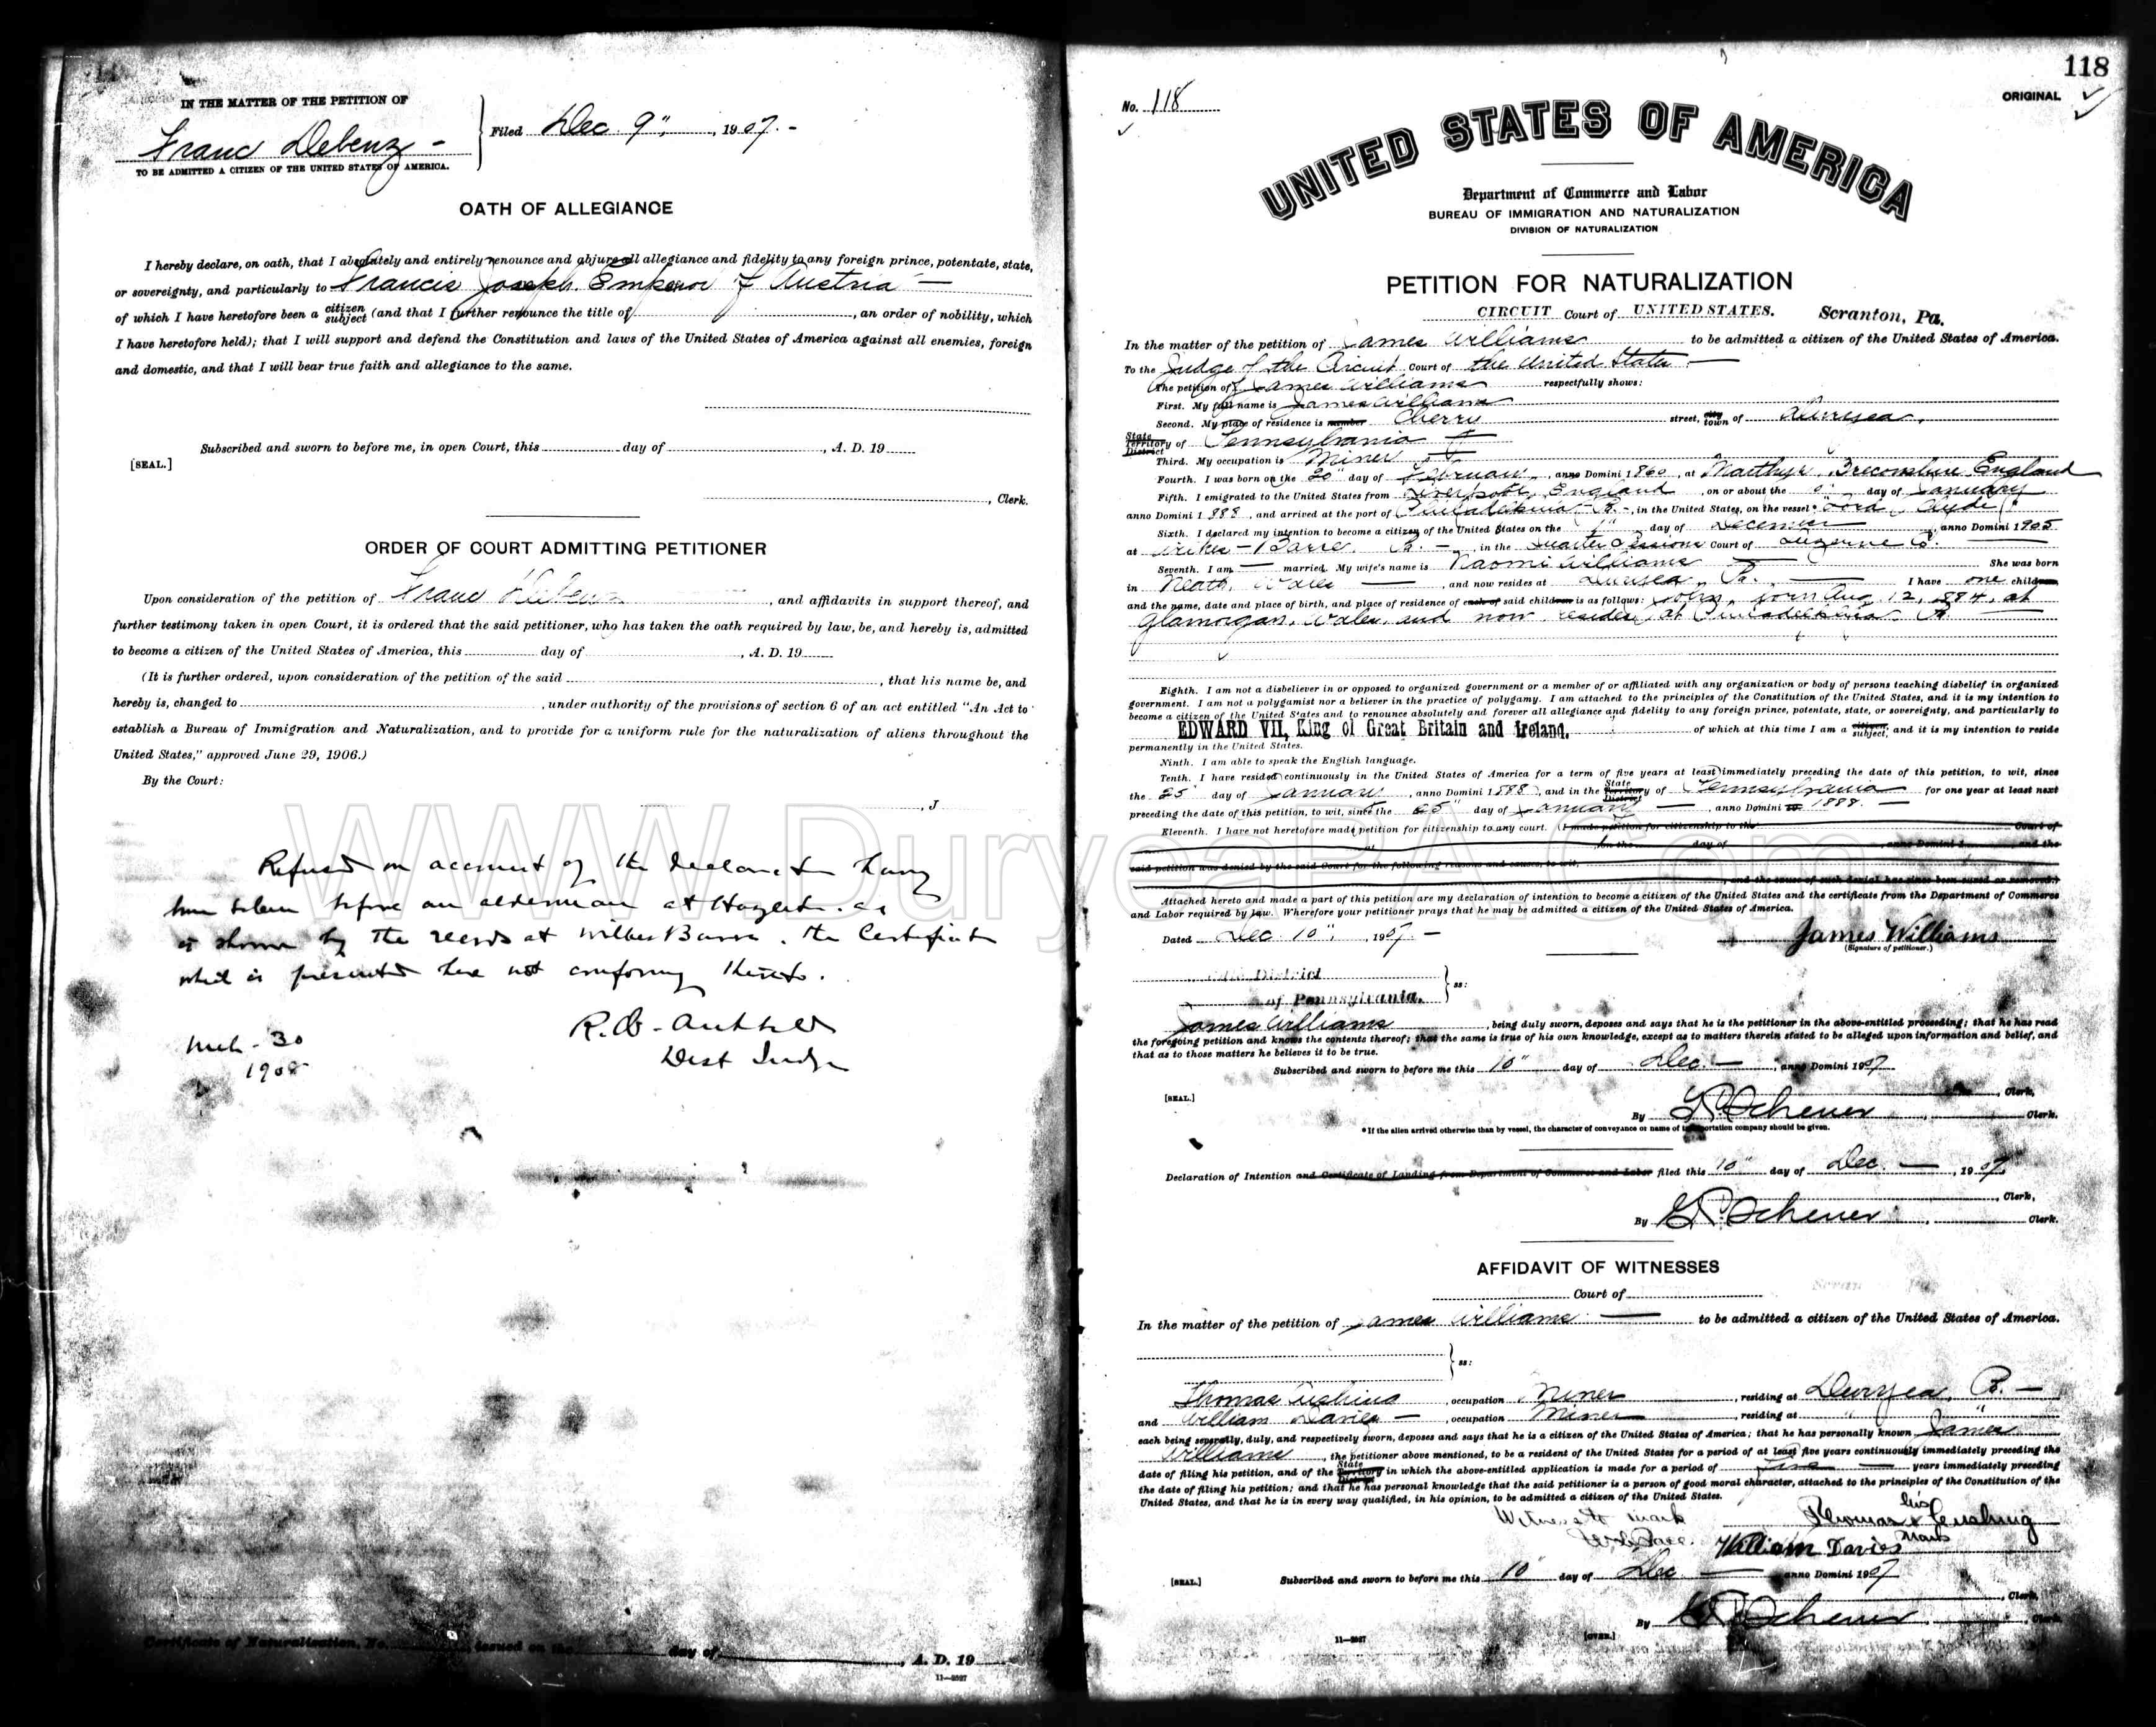 IN THE MATTER OF THE PETITION OF
Franc Debenz -
TO BE ADMITTED A CITIZEN OF THE UNITED STATES OF AMERICA.
Filed Dec. 9", 1907. -
OATH OF ALLEGIANCE
I hereby declare, on oath, that I absolutely and entirely renounce and abjure all allegiance and fidelity to any foreign prince, potentate, state,
or sovereignty, and particularly to Francis Joseph. Emperor of Austria —
of which I have heretofore been a citizen subject (and that I further renounce the title of , an order of nobility, which
I have heretofore held); that I will support and defend the Constitution and laws of the United States of America against all enemies, foreign
and domestic, and that I will bear true faith and allegiance to the same.
Subscribed and sworn to before me, in open Court, this day of , A. D. 19
[SEAL.]
, Clerk.
ORDER OF COURT ADMITTING PETITIONER
Upon consideration of the petition of Franc Debenz , and affidavits in support thereof, and
further testimony taken in open Court, it is ordered that the said petitioner, who has taken the oath required by law, be, and hereby is, admitted
to become a citizen of the United States of America, this day of , A. D. 19
(It is further ordered, upon consideration of the petition of the said , that his name be, and
hereby is, changed to , under authority of the provisions of section 6 of an act entitled "An Act to
establish a Bureau of Immigration and Naturalization, and to provide for a uniform rule for the naturalization of aliens throughout the
United States," approved June 29, 1906.)
By the Court:
, J
Refused on account of the declaration having
been taken before an alderman at Hazleton. as
is shown by the records at Wilkes Barre. the Certificate
which is presented here not conforming thereto.
R. W. Archbald
Dist Judge
Mch - 30
1908
Certificate of Naturalization, No. , issued on the day of , A. D. 19
11—2527
118
ORIGINAL
No. 118
UNITED STATES OF AMERICA
Department of Commerce and Labor
BUREAU OF IMMIGRATION AND NATURALIZATION
DIVISION OF NATURALIZATION
PETITION FOR NATURALIZATION
CIRCUIT Court of UNITED STATES. Scranton, Pa.
In the matter of the petition of James Williams to be admitted a citizen of the United States of America.
To the Judge of the Circuit Court of the United States —
The petition of James Williams respectfully shows:
First. My full name is James Williams
Second. My place of residence is number Cherry street, city town of Duryea,
State Territory District of Pennsylvania
Third. My occupation is Miner
Fourth. I was born on the 20" day of February, anno Domini 1860, at Maerthyr, Breconshire England
Fifth. I emigrated to the United States from Liverpool, England, on or about the day of January
anno Domini 1888, and arrived at the port of Philadelphia - Pa. -, in the United States, on the vessel* "Lord Clyde"
Sixth. I declared my intention to become a citizen of the United States on the day of December, anno Domini 1905
at Wilkes-Barre, Pa. -, in the Quarter Sessions Court of Luzerne Co. —
Seventh. I am — married. My wife's name is Naomi Williams — She was born
in Neath, Wales —, and now resides at Duryea, Pa., — I have one children
and the name, date and place of birth, and place of residence of each of said children is as follows: John, born Aug. 12, 1884, at
Glamorgan, Wales, and now resides at Philadelphia. Pa. —
Eighth. I am not a disbeliever in or opposed to organized government or a member of or affiliated with any organization or body of persons teaching disbelief in organized
government. I am not a polygamist nor a believer in the practice of polygamy. I am attached to the principles of the Constitution of the United States, and it is my intention to
become a citizen of the United States and to renounce absolutely and forever all allegiance and fidelity to any foreign prince, potentate, state, or sovereignty, and particularly to
EDWARD VII, King of Great Britain and Ireland, of which at this time I am a citizen, subject, and it is my intention to reside
permanently in the United States.
Ninth. I am able to speak the English language.
Tenth. I have resided continuously in the United States of America for a term of five years at least immediately preceding the date of this petition, to wit, since
the 25" day of January, anno Domini 1888, and in the State Territory District of Pennsylvania for one year at least next
preceding the date of this petition, to wit, since the 25" day of January —, anno Domini 1888. —
Eleventh. I have not heretofore made petition for citizenship to any court. (I made petition for citizenship to the Court of
at , on the day of , anno Domini 1 , and the
said petition was denied by the said Court for the following reasons and causes, to wit,
, and the cause of such denial has since been cured or removed.)
Attached hereto and made a part of this petition are my declaration of intention to become a citizen of the United States and the certificate from the Department of Commerce
and Labor required by law. Wherefore your petitioner prays that he may be admitted a citizen of the United States of America.
Dated Dec. 10", 1907. —
James Williams
(Signature of petitioner.)
District
of Pennsylvania. ss:
James Williams, being duly sworn, deposes and says that he is the petitioner in the above-entitled proceeding; that he has read
the foregoing petition and knows the contents thereof; that the same is true of his own knowledge, except as to matters therein stated to be alleged upon information and belief, and
that as to those matters he believes it to be true.
Subscribed and sworn to before me this 10" day of Dec. —, anno Domini 1907
[SEAL.]
, Clerk,
By G. Scheuer, Clerk.
*If the alien arrived otherwise than by vessel, the character of conveyance or name of transportation company should be given.
Declaration of Intention and Certificate of Landing from Department of Commerce and Labor filed this 10" day of Dec. —, 1907.
, Clerk,
By G. Scheuer, Clerk.
AFFIDAVIT OF WITNESSES
Court of
In the matter of the petition of James Williams — to be admitted a citizen of the United States of America.
ss:
Thomas Cushing, occupation Miner, residing at Duryea, Pa. —
and William Davies —, occupation Miner, residing at " "
each being severally, duly, and respectively sworn, deposes and says that he is a citizen of the United States of America; that he has personally known James
Williams, the petitioner above mentioned, to be a resident of the United States for a period of at least five years continuously immediately preceding the
date of filing his petition, and of the State Territory District in which the above-entitled application is made for a period of five — years immediately preceding
the date of filing his petition; and that he has personal knowledge that the said petitioner is a person of good moral character, attached to the principles of the Constitution of the
United States, and that he is in every way qualified, in his opinion, to be admitted a citizen of the United States.
Witness to mark
his
Thomas x Cushing
mark
William Davies
[SEAL.] Subscribed and sworn to before me this 10" day of Dec — anno Domini 1907
, Clerk,
By G. Scheuer, Clerk.
11—2527
[OVER.]
WWW.DuryeaPA.Com